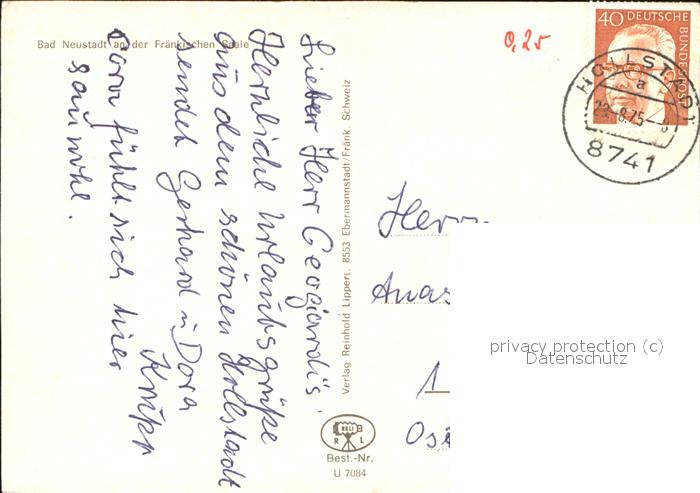 Bad Neustadt an der Fränkischen Saale
0,25
40 DEUTSCHE BUNDESPOST
HOLLSTADT
a
22.-8.75.-
8741
Lieber Herr Geogiardis.
Herzliche Urlaubsgrüße
aus dem schönen Hollstadt
sendet Gerhard u. Dora
Krupp
Dora fühlt sich hier
sauwohl.
Verlag Reinhold Lippert, 8553 Ebermannstadt/Fränk. Schweiz
RELI
R L
Best.-Nr.
U 7084
Herrn
Anas
1
Ose
privacy protection (c)
Datenschutz